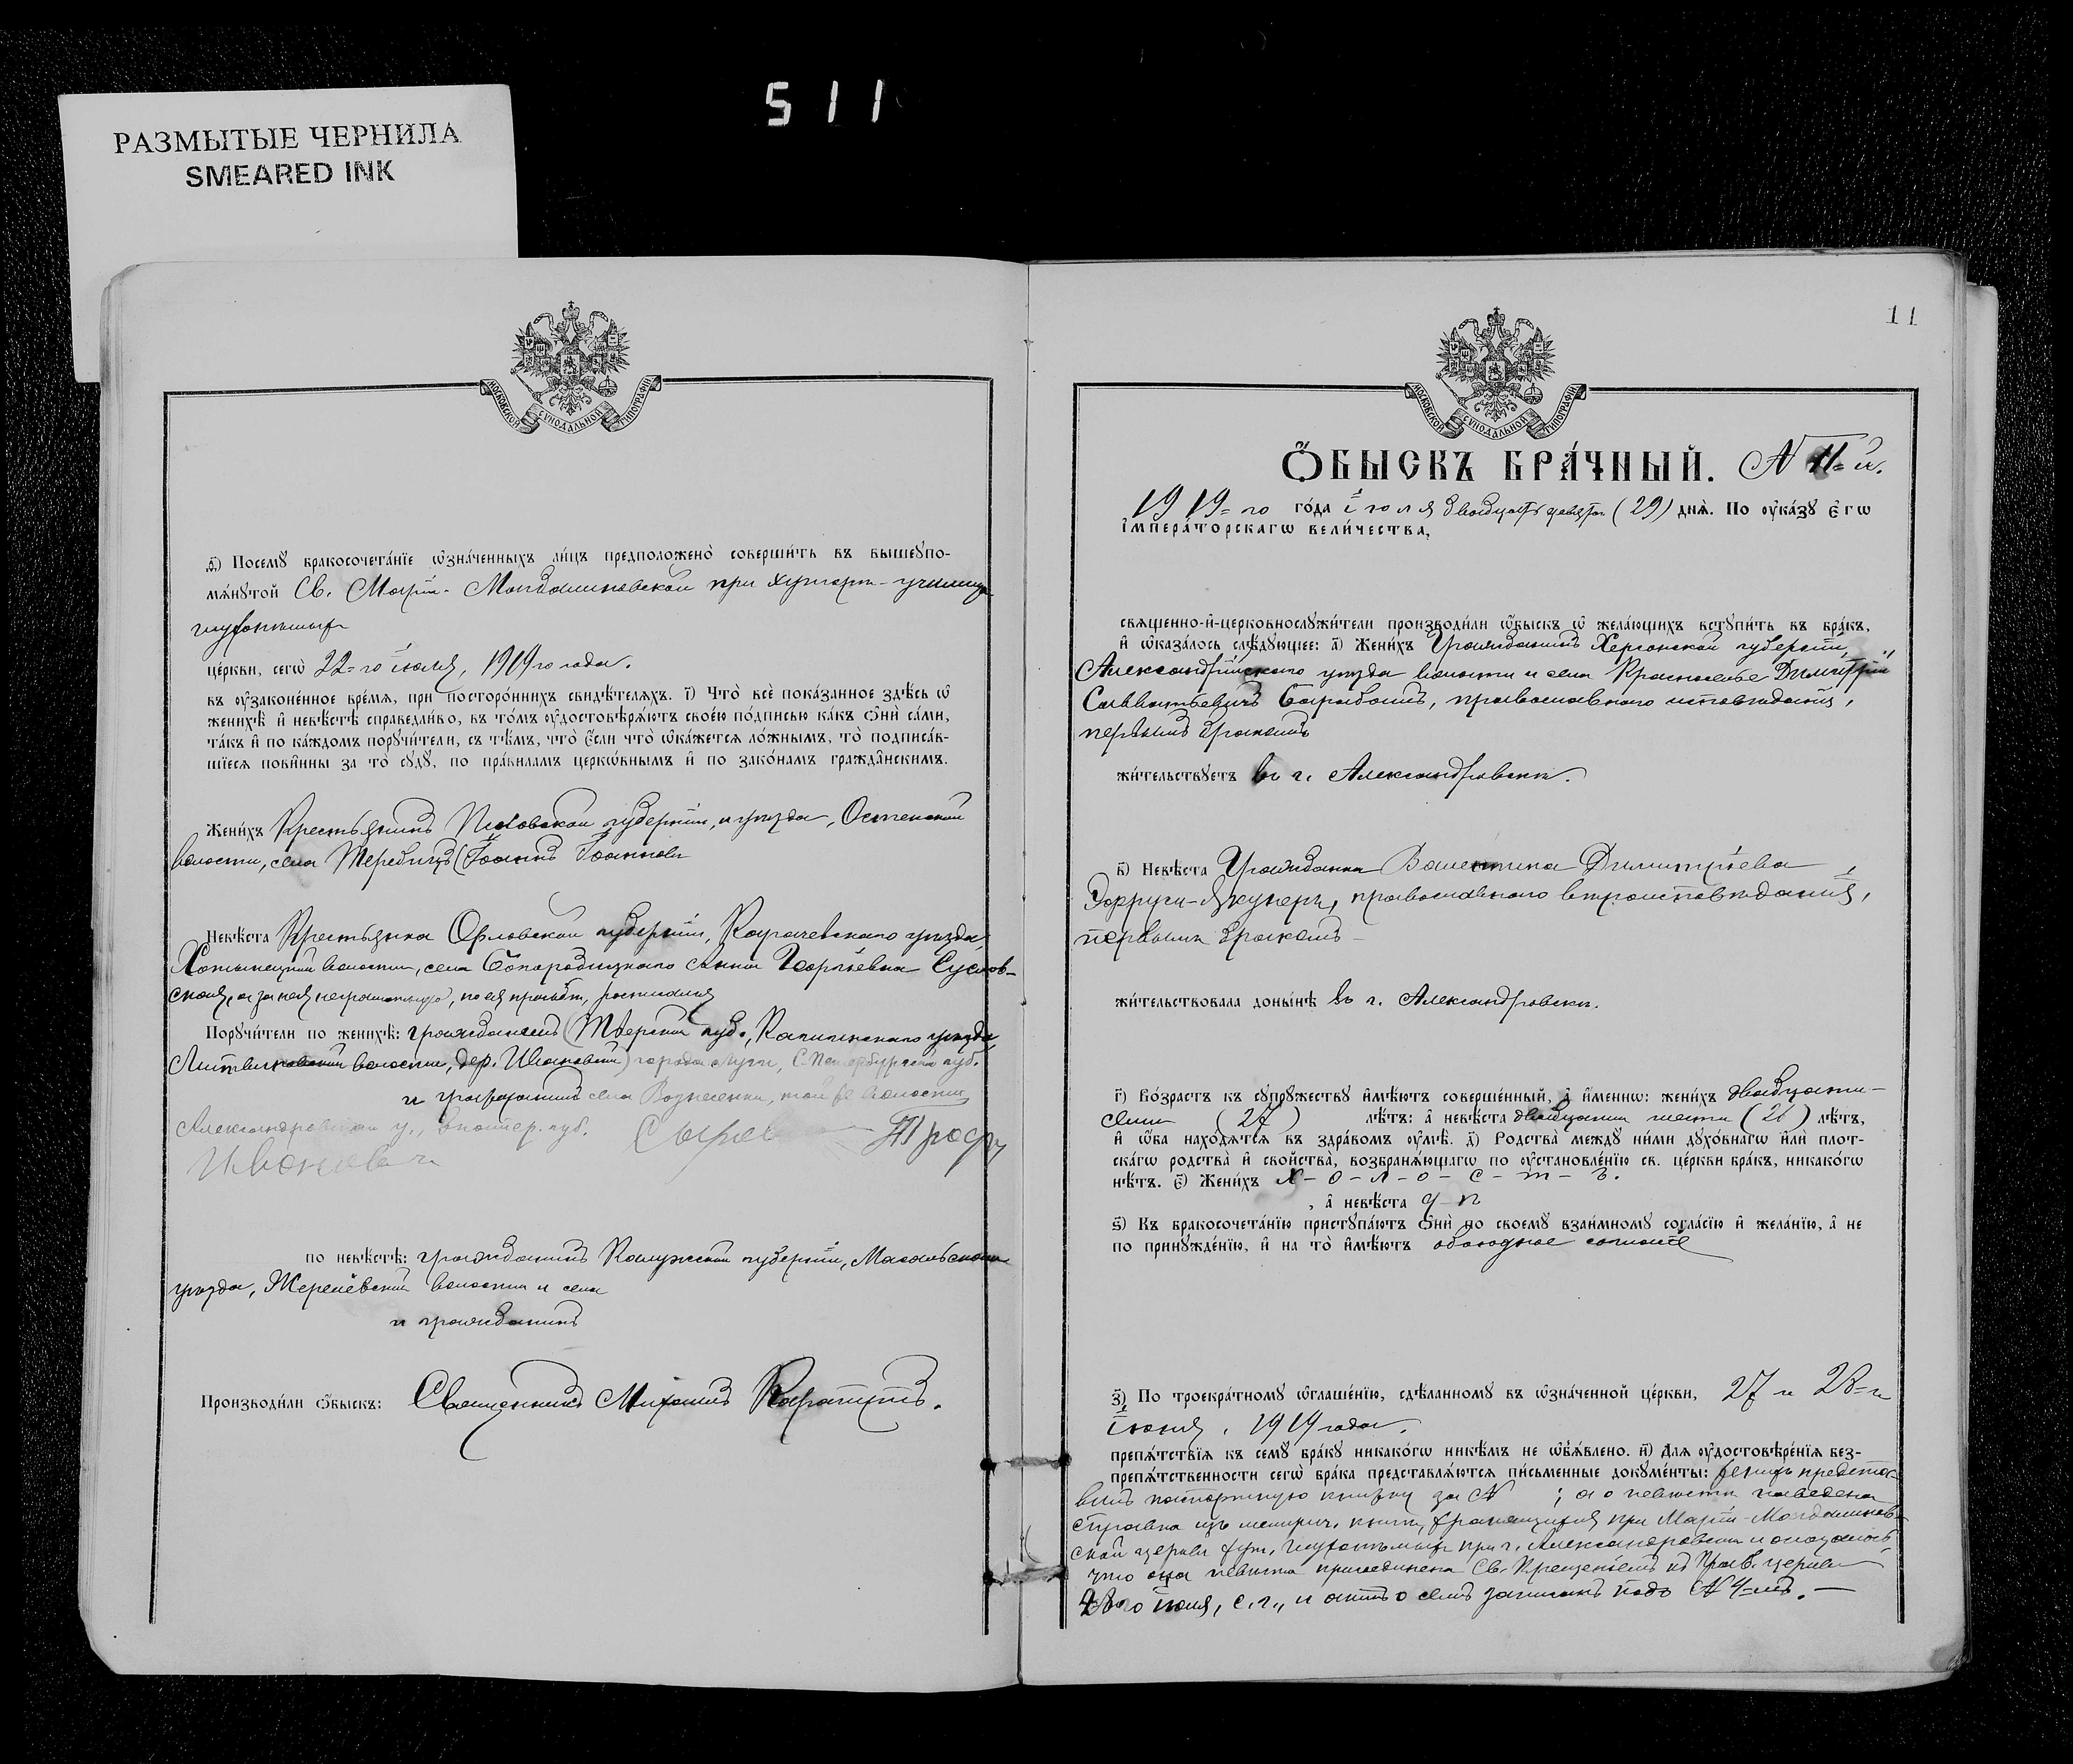 511
РАЗМЫТЫЕ ЧЕРНИЛА
SMEARED INK
МОСКОВСКОЙ СѴНОДАЛЬНОЙ ТИПОГРАФІИ
ѳ҃) Посемꙋ бракосочета́нїе ѡ҆зна́ченныхъ ли́цъ предположено̀ соверши́ть въ вышеꙋпо-
мѧ́нꙋтой Св. Маріи-Магдалиновской при хуторѣ-училищѣ
глухонѣмыхъ
це́ркви, сегѡ̀ 22-го іюля, 1919 го года.
въ ᲂу҆зако́ненное вре́мѧ, при посторо́ннихъ свидѣ́телѧхъ. і҃) Что̀ всѐ пока́занное здѣ́сь ѡ҆
женихѣ̀ и҆ невѣ́стѣ справедли́во, въ то́мъ ᲂу҆достовѣрѧ́ютъ свое́ю по́дписью ка́къ ѻ҆нѝ са́ми,
та́къ и҆ по ка́ждомъ порꙋчи́тели, съ тѣ́мъ, что̀ є҆́сли что̀ ѡ҆ка́жетсѧ ло́жнымъ, то̀ подписа́в-
шїесѧ пови́нны за то̀ сꙋдꙋ̀, по пра́виламъ церкѡ́внымъ и҆ по зако́намъ гражда̑нскимъ.
Жени́хъ Крестьянинъ Псковской губерніи, и уѣзда, Остенской
волости, села Теребищъ Іоаннъ Іоанновъ
Невѣ́ста Крестьянка Орловской губерніи, Карачевскаго уѣзда,
Хотынецкой волости, села Богородицкаго Анна Георгіевна Суслов-
ская, а за нея неграмотную, по ея просьбѣ, росписался
Порꙋчи́тели по женихѣ̀: гражданинъ (Тверской губ., Калязинскаго уѣзда
волости, дер. Ивановской) города Луги, С.Петербургской губ.
и гражданинъ села Вознесенки, той же волости
Александровскаго у., Екатер. губ.
по невѣ́стѣ: гражданинъ Калужской губерніи, Масальскаго
уѣзда, волости и села
и гражданинъ
Производи́ли ѻ҆́быскъ: Священникъ Михаилъ
11
МОСКОВСКОЙ СѴНОДАЛЬНОЙ ТИПОГРАФІИ
Ѻ҆́БЫСКЪ БРА́ЧНЫЙ. N 11-й.
1919-го го́да іюля двадцать девятаго (29) днѧ̀. По ᲂу҆ка́зꙋ Є҆гѡ̀
і҆мпера́торскагѡ вели́чества,
свѧще́нно-и҆-церковнослꙋжи́тели производи́ли ѻ҆́быскъ ѡ҆ жела́ющихъ встꙋпи́ть въ бра́къ,
и҆ ѡ҆каза́лось слѣ́дꙋющее: а҃) Жени́хъ Гражданинъ Херсонской губерніи,
Александрійскаго уѣзда волости и села Красноселье Димитрій
Савватьевичъ Барабашъ, православнаго исповѣданія,
первымъ бракомъ
жи́тельствꙋетъ въ г. Александровскѣ.
в҃) Невѣ́ста Гражданка Валентина Димитріева
Эфруси-Якунеръ, православнаго вѣроисповѣданія,
первымъ бракомъ
жи́тельствовала доны́нѣ въ г. Александровскѣ.
г҃) Во́зрастъ къ сꙋпрꙋ́жествꙋ и҆мѣ́ютъ соверше́нный, а҆ и҆́меннѡ: жени́хъ двадцати-
семи (27) лѣ́тъ: а҆ невѣ́ста двадцати шести (26) лѣ́тъ,
и҆ ѻ҆́ба нахо́дѧтсѧ въ здра́вомъ ᲂу҆мѣ̀. д҃) Родства̀ междꙋ ни́ми дꙋхо́внагѡ и҆лѝ плот-
ска́гѡ родства̀ и҆ сво́йства, возбранѧ́ющагѡ по ᲂу҆становле́нїю св. це́ркви бра́къ, никако́гѡ
нѣ́тъ. є҃) Жени́хъ х-о-л-о-с-т-ъ.
, а҆ невѣ́ста
ѕ҃) Къ бракосочета́нїю пристꙋпа́ютъ ѻ҆нѝ по своемꙋ̀ взаи́мномꙋ согла́сїю и҆ жела́нїю, а҆ не
по принꙋжде́нїю, и҆ на то̀ и҆мѣ́ютъ обоюдное согласіе
з҃) По троекра́тномꙋ ѡ҆глаше́нїю, сдѣ́ланномꙋ въ ѡ҆зна́ченной це́ркви, 27 и 28-и
іюля, 1919 года.
препѧ́тствїѧ къ семꙋ̀ бра́кꙋ никако́гѡ никѣ́мъ не ѡ҆б̾ѧ́влено. и҃) Длѧ ᲂу҆достовѣре́нїѧ без-
препѧ́тственности сегѡ̀ бра́ка представлѧ́ютсѧ пи́сьменные докꙋме́нты: женихъ предста-
вилъ паспортную книжку за N ; а о невѣстѣ наведена
справка изъ метрич. книги, хранящейся при Маріи-Магдалинов-
ской церкви хут. глухонѣмыхъ при г. Александровскѣ и оказалось
что она невѣста присоединена Св. Крещеніемъ къ Прав. церкви
28-го іюля, с. г., и актъ о семъ записанъ подъ N 4-мъ.